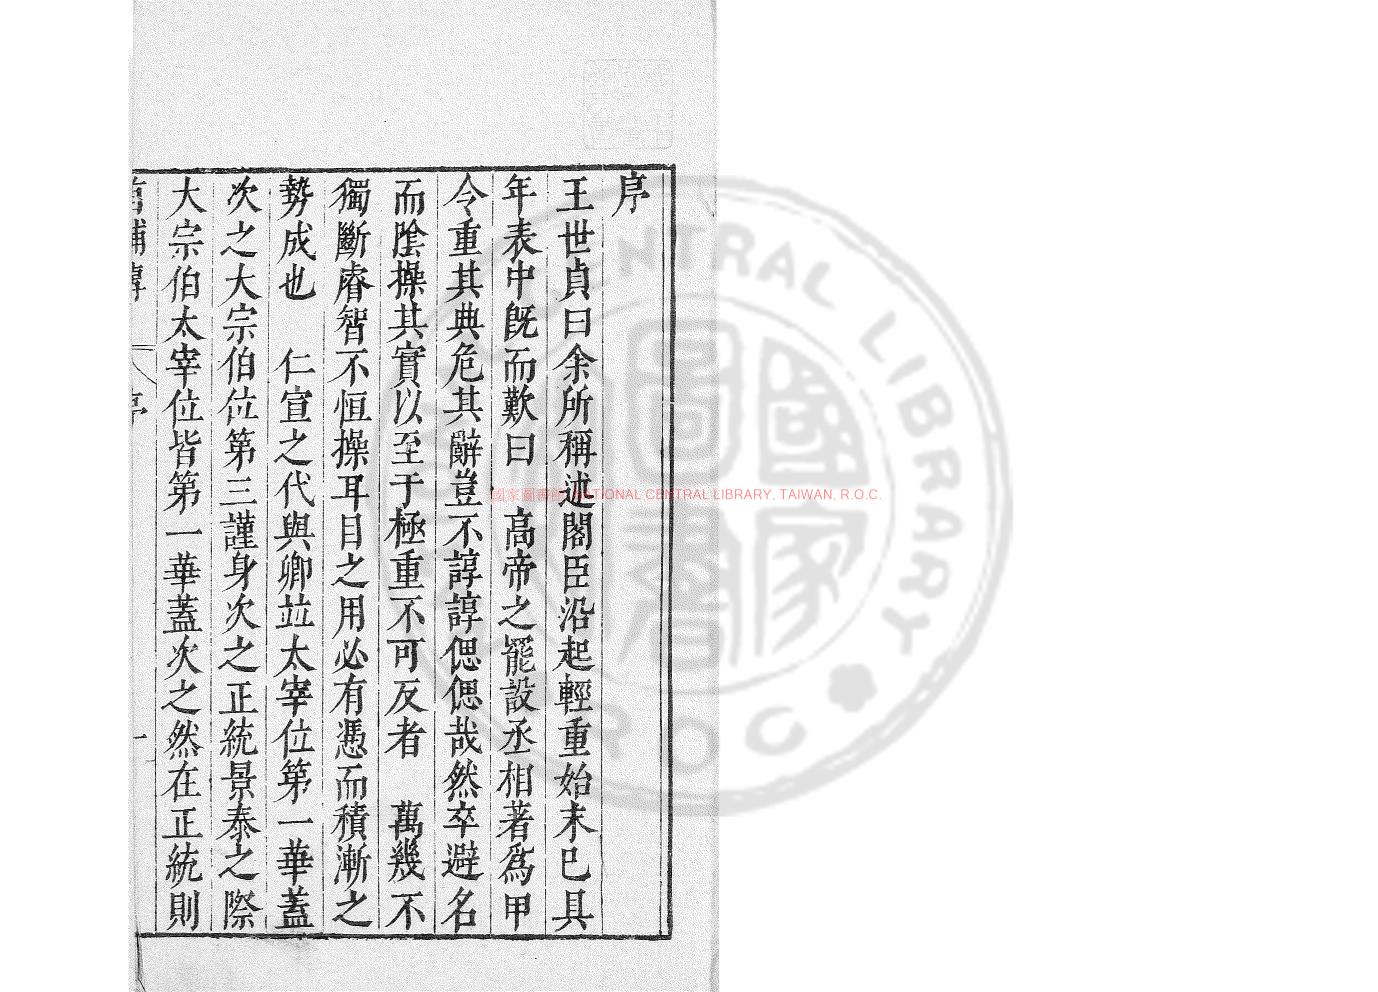 序
王世貞曰余所稱述閣臣沿起輕重始末已具
年表中既而歎曰　高帝之罷設丞相著爲甲
令重其典危其辭豈不諄諄偲偲哉然卒避名
而陰操其實以至于極重不可反者　萬幾不
獨斷睿智不恒操耳目之用必有憑而積漸之
勢成也　仁宣之代與卿竝太宰位第一華蓋
次之大宗伯位第三謹身次之正統景泰之際
大宗伯太宰位皆第一華蓋次之然在正統則
序
一
國家圖書館 NATIONAL CENTRAL LIBRARY, TAIWAN, R.O.C.
CENTRAL LIBRARY
R.O.C
國家圖書